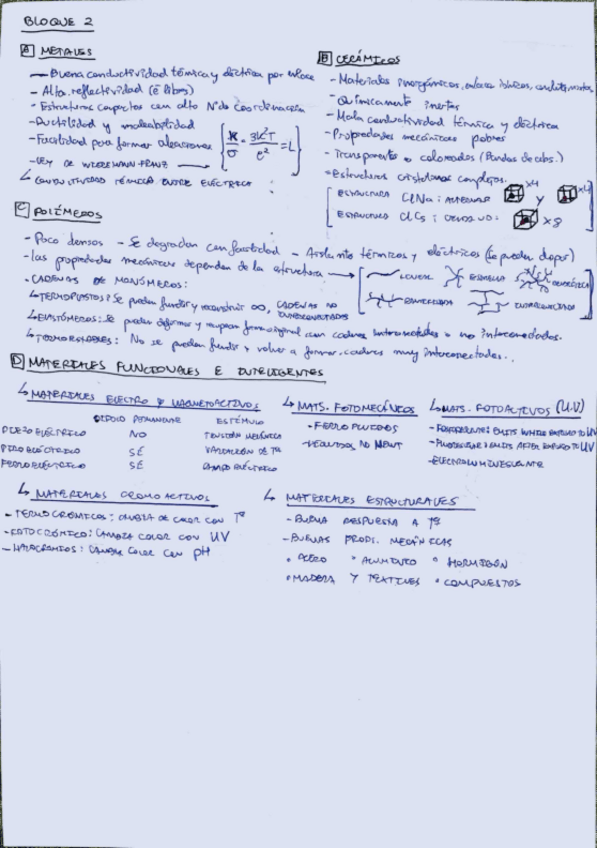 BLOQUE 2
A METALES
— Buena conductividad térmica y eléctrica por enlace
- Alta reflectividad (e⁻ libres)
- Estructuras compactas con alto Nº de coordinación
- Ductilidad y maleabilidad
- Facilidad para formar aleaciones
- LEY DE WIEDEMANN-FRANZ → [K/σ = 3k²T/e² = L]
↳ CONDUCTIVIDAD TÉRMICA ENTRE ELÉCTRICA
B CERÁMICOS
- Materiales inorgánicos, enlaces iónicos,
- Químicamente inertes
- Mala conductividad térmica y eléctrica
- Propiedades mecánicas pobres
- Transparente o coloreados (Bandas de abs.)
- Estructuras cristalinas complejas.
ESTRUCTURA ClNa: ALTERNAR x4 y x4
ESTRUCTURA ClCs: x8
C POLÍMEROS
- Poco densos - Se degradan con facilidad - Aislante térmicos y eléctricos (se pueden dopar)
- Las propiedades mecánicas dependen de la estructura → LINEAL ESTRELLA DENDRÍTICA
RAMIFICADA ENTRECRUZADO
- CADENAS DE MONÓMEROS:
↳ TERMOPLÁSTICOS: Se pueden fundir y reconstruir ∞, CADENAS NO INTERCONECTADAS
↳ ELASTÓMEROS: Se pueden deformar y recuperan forma original con cadenas interconectadas o no interconectadas.
↳ TERMOESTABLES: No se pueden fundir y volver a formar, cadenas muy interconectadas.
D MATERIALES FUNCIONALES E INTELIGENTES
↳ MATERIALES ELECTRO Y MAGNETOACTIVOS
DIPOLO PERMANENTE ESTÍMULO
PIEZOELÉCTRICO NO TENSIÓN MECÁNICA
PIROELÉCTRICO SÍ VARIACIÓN DE Tª
FERROELÉCTRICO SÍ CAMPO ELÉCTRICO
↳ MATS. FOTOMECÁNICOS
- FERROFLUIDOS
- FLUIDOS NO NEWT
↳ MATS. FOTOACTIVOS (U.V)
- EMITS WHILE EXPOSED TO UV
- EMITS AFTER EXPOSED TO UV
- ELECTROLUMINISCENTE
↳ MATERIALES CROMOACTIVOS
- TERMOCRÓMICOS: CAMBIA DE COLOR CON Tª
- FOTOCRÓMICO: CAMBIA COLOR CON UV
- CAMBIA COLOR CON pH
↳ MATERIALES ESTRUCTURALES
- BUENA RESPUESTA A Tª
- BUENAS PROP. MECÁNICAS
• ACERO • ALUMINIO • HORMIGÓN
• MADERA Y TEXTILES • COMPUESTOS